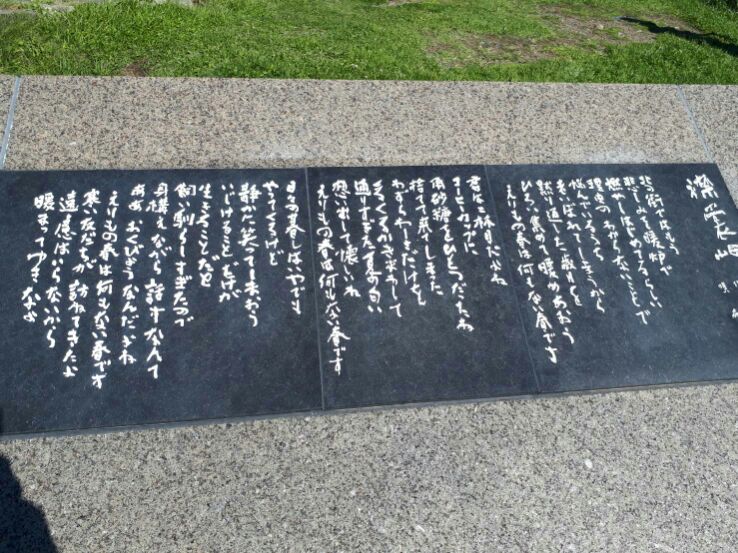 襟裳岬
北の街ではもう
悲しみを暖炉で
燃やしはじめてるらしい
理由のわからないことで
悩んでいるうち
老いぼれてしまうから
黙り通した歳月を
ひろい集めて暖めあおう
えりもの春は何もない春です
君は二杯目だよね
コーヒーカップに
角砂糖ひとつだったね
捨てて来てしまった
わずらわしさだけを
くるくるかきまわして
通りすぎた夏の匂い
想い出して懐しいね
えりもの春は何もない春です
日々の暮しはいやでも
やってくるけど
静かに笑ってしまおう
いじけることだけが
生きることだと
飼い馴らしすぎたので
身構えながら話すなんて
ああ おくびょうなんだよね
えりもの春は何もない春です
寒い友だちが 訪ねてきたよ
遠慮はいらないから
暖まってゆきなよ